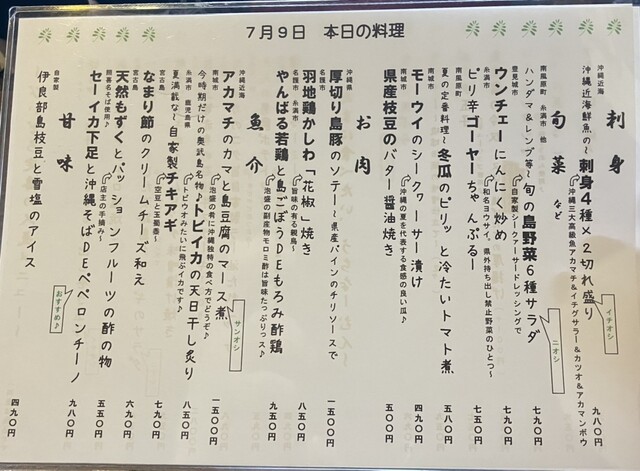 7月9日 本日の料理
刺身
沖縄近海
沖縄近海鮮魚の~刺身4種×2切れ盛り
沖縄三大高級魚アカマチ&イチグサラー&カツオ&アカマンボウ
イチオシ
九八〇円
旬菜など
南風原町 糸満市 他
ハンダマ&レンブ等~旬の島野菜6種サラダ
自家製シークァーサードレッシングで
ニオシ
七九〇円
豊見城市
ウンチェーにんにく炒め
七九〇円
糸満市
ピリ辛ゴーヤーちゃんぷるー
和名ヨウサイ、県外持ち出し禁止野菜のひとつ~
七五〇円
南風原町
夏の定番料理~冬瓜のピリッと冷たいトマト煮
五八〇円
南城市
モーウイのシークヮーサー漬け
沖縄の夏を代表する食感の良い瓜♪
四九〇円
南城市
県産枝豆のバター醤油焼き
五〇〇円
お肉
沖縄県
厚切り島豚のソテー~県産パインのチリソースで
一五〇〇円
名護市
羽地鶏かしわ「花椒」焼き
旨味の有る親鳥~
八五〇円
名護市 糸満市
やんばる若鶏と島ごぼうDEもろみ酢鶏
泡盛の副産物モロミ酢は旨味たっぷりっス♪
九五〇円
魚介
沖縄近海
アカマチのカマと島豆腐のマース煮
泡盛の肴に沖縄独特の食べ方でどうぞ♪
サンオシ
一五〇〇円
南城市
今時期だけの奥武島名物♪トビイカの天日干し炙り
トビウオみたいに飛ぶイカです♪
八五〇円
糸満市 鹿児島県
夏満載な~自家製チキアギ
空豆と玉蜀黍~
七五〇円
宮古島
なまり節のクリームチーズ和え
六九〇円
宮古島
天然もずくとパッションフルーツの酢の物
店主の手摘み~
五五〇円
照喜名そば使用♪
セーイカ下足と沖縄そばDEペペロンチーノ
おすすめ♪
九八〇円
甘味
自家製
伊良部島枝豆と雪塩のアイス
四九〇円